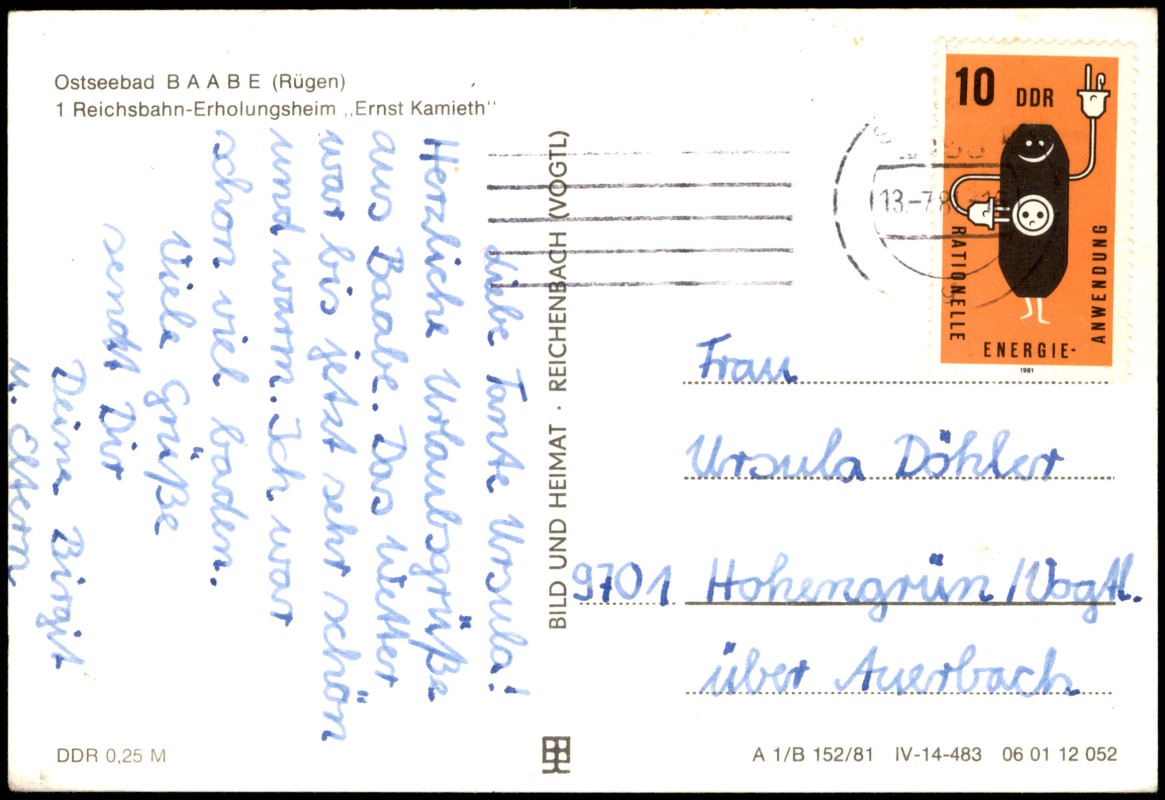 Ostseebad BAABE (Rügen)
1 Reichsbahn-Erholungsheim „Ernst Kamieth"
Liebe Tante Ursula!
Herzliche Urlaubsgrüße
aus Baabe. Das Wetter
war bis jetzt sehr schön
und warm. Ich war
schon viel baden.
Viele Grüße
sendet Dir
Deine Birgit
u. Eltern
BILD UND HEIMAT · REICHENBACH (VOGTL)
10 DDR
RATIONELLE
ENERGIE-
ANWENDUNG
1981
13.-7.8
Frau
Ursula Döhler
9701 Hohengrün/Vogtl.
über Auerbach
DDR 0,25 M
A 1/B 152/81 IV-14-483 06 01 12 052